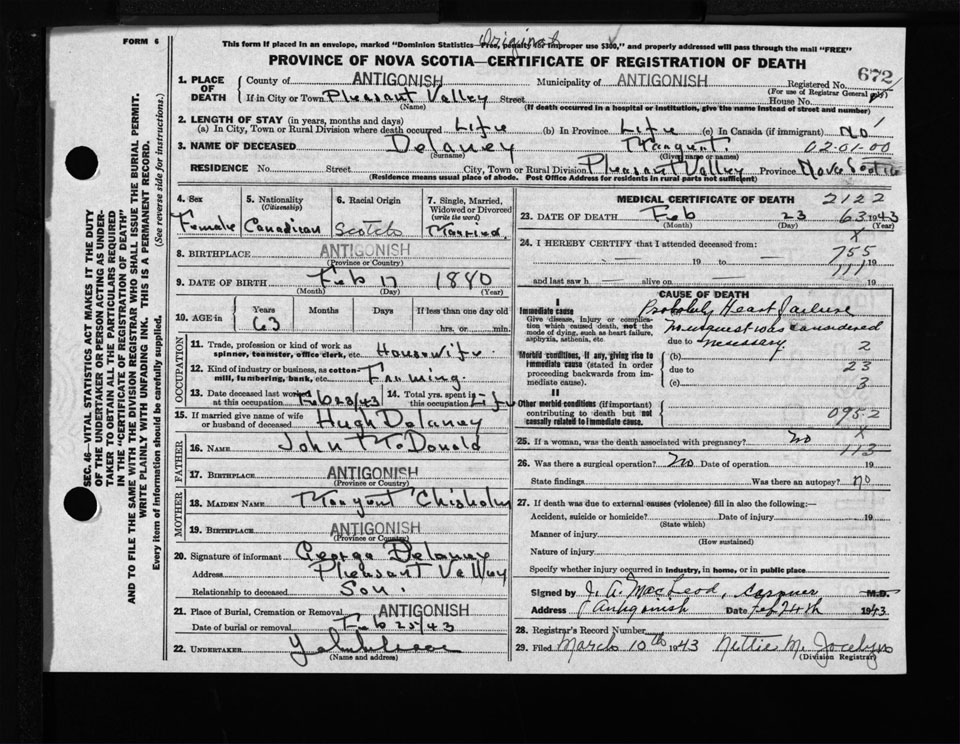 FORM 6
Original
This form if placed in an envelope, marked "Dominion Statistics—Free, penalty for improper use $300," and properly addressed will pass through the mail "FREE"
PROVINCE OF NOVA SCOTIA—CERTIFICATE OF REGISTRATION OF DEATH
SEC. 46—VITAL STATISTICS ACT MAKES IT THE DUTY
OF THE UNDERTAKER OR PERSON ACTING AS UNDER-
TAKER TO OBTAIN ALL THE PARTICULARS REQUIRED
IN THE "CERTIFICATE OF REGISTRATION OF DEATH"
AND TO FILE THE SAME WITH THE DIVISION REGISTRAR WHO SHALL ISSUE THE BURIAL PERMIT.
WRITE PLAINLY WITH UNFADING INK. THIS IS A PERMANENT RECORD.
Every item of information should be carefully supplied. (See reverse side for instructions.)
1. PLACE OF DEATH County of ANTIGONISH Municipality of ANTIGONISH Registered No. 672
(For use of Registrar General only)
If in City or Town Pleasant Valley Street House No.
(Name) (If death occurred in a hospital or institution, give the name instead of street and number)
2. LENGTH OF STAY (in years, months and days)
(a) In City, Town or Rural Division where death occurred Life (b) In Province Life (c) In Canada (if immigrant) No
3. NAME OF DECEASED Delaney Margaret 02-01-00
(Surname) (Given name or names)
RESIDENCE No. Street City, Town or Rural Division Pleasant Valley Province Nova Scotia
(Residence means usual place of abode. Post Office Address for residents in rural parts not sufficient)
4. Sex 5. Nationality (Citizenship) 6. Racial Origin 7. Single, Married, Widowed or Divorced (write the word)
Female Canadian Scotch Married
8. BIRTHPLACE ANTIGONISH
(Province or Country)
9. DATE OF BIRTH Feb 17 1880
(Month) (Day) (Year)
10. AGE in Years Months Days If less than one day old
63 hrs. or min.
OCCUPATION
11. Trade, profession or kind of work as spinner, teamster, office clerk, etc. Housewife
12. Kind of industry or business, as cotton mill, lumbering, bank, etc. Farming
13. Date deceased last worked at this occupation Feb 23/43 14. Total yrs. spent in this occupation Life
15. If married give name of wife or husband of deceased Hugh Delaney
FATHER
16. NAME John McDonald
17. BIRTHPLACE ANTIGONISH
(Province or Country)
MOTHER
18. MAIDEN NAME Margaret Chisholm
19. BIRTHPLACE ANTIGONISH
(Province or Country)
20. Signature of informant George Delaney
Address Pleasant Valley
Relationship to deceased Son.
21. Place of Burial, Cremation or Removal ANTIGONISH
Date of burial or removal Feb 25/43
22. UNDERTAKER
(Name and address)
MEDICAL CERTIFICATE OF DEATH 2122
23. DATE OF DEATH Feb 23 1943
63
(Month) (Day) (Year)
24. I HEREBY CERTIFY that I attended deceased from: x
19 to 755 19
and last saw h alive on 111 19
CAUSE OF DEATH
I
Immediate cause Probably Heart Failure
Give disease, injury or complication which caused death, not the mode of dying, such as heart failure, asphyxia, asthenia, etc.
No inquest was considered
due to necessary. 2
Morbid conditions, if any, giving rise to immediate cause (stated in order proceeding backwards from immediate cause).
(b)
due to 23
(c) 3
II
Other morbid conditions (if important) contributing to death but not causally related to immediate cause.
095-2
x
25. If a woman, was the death associated with pregnancy? No 113
26. Was there a surgical operation? No Date of operation 19
State findings Was there an autopsy? no
27. If death was due to external causes (violence) fill in also the following:—
Accident, suicide or homicide? Date of injury 19
(State which)
Manner of injury
(How sustained)
Nature of injury
Specify whether injury occurred in industry, in home, or in public place
Signed by J. A. MacLeod, Coroner M.D.
Address Antigonish Date Feb 24th 1943
28. Registrar's Record Number
29. Filed March 10th 1943 Nettie M. Jocelyn
(Division Registrar)